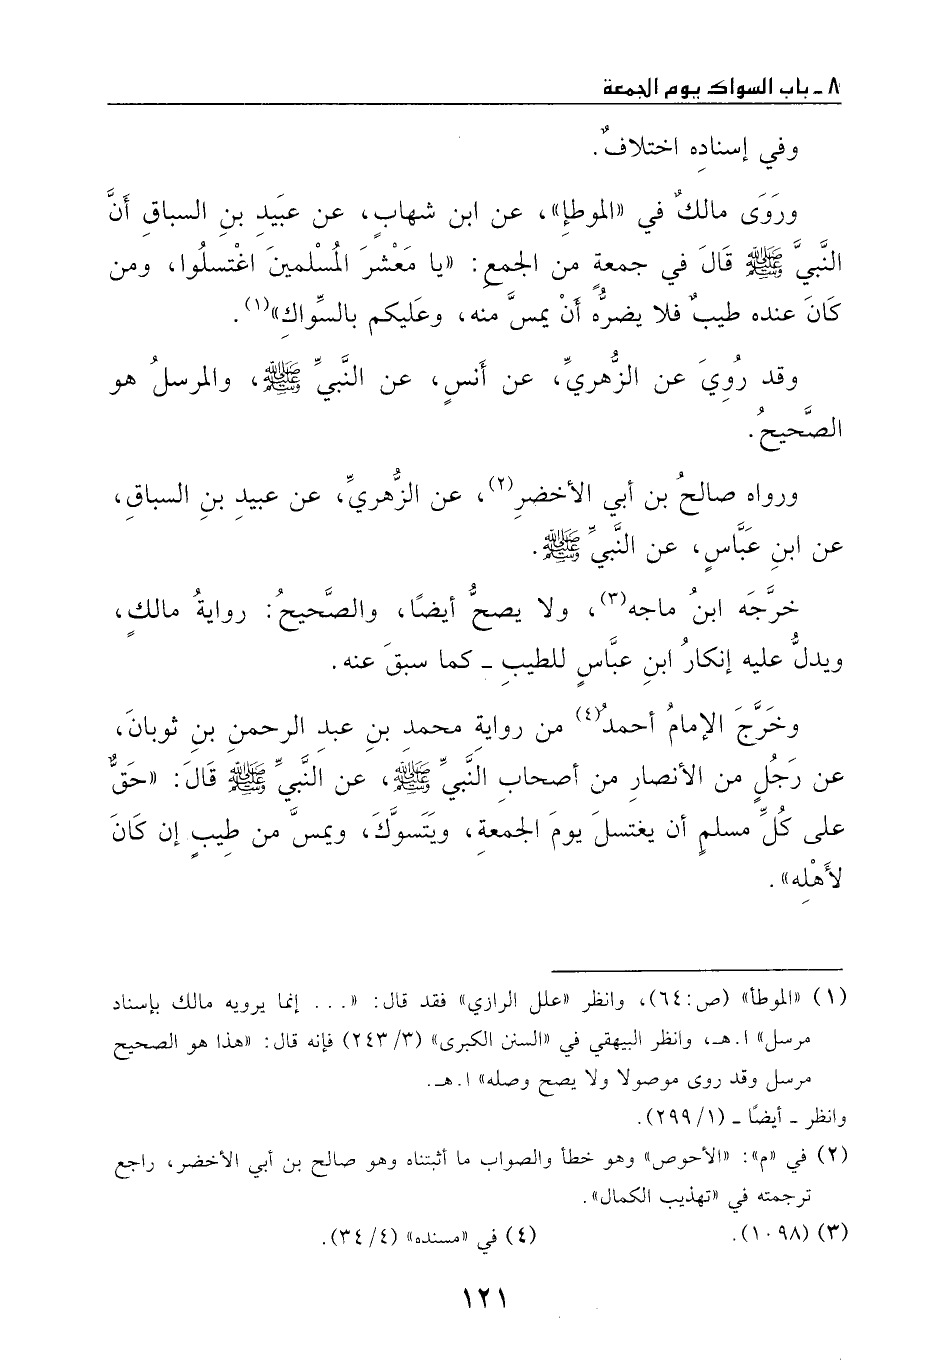 ٨ - باب السواك يوم الجمعة
وفي إسنادِه اختلافٌ.
ورَوَى مالكٌ في «الموطإِ»، عن ابن شهابٍ، عن عبَيدِ بنِ السباقِ أَنَّ
النَّبيَّ ﷺ قَالَ في جمعةٍ من الجمعِ: «يا مَعْشرَ المُسْلمينَ اغْتسلُوا، ومن
كَانَ عنده طيبٌ فلا يضرُّه أَنْ يمسَّ منه، وعَليكم بالسِّواكِ»(١).
وقد رُوِيَ عن الزُّهريِّ، عن أَنسٍ، عن النَّبيِّ ﷺ، والمرسلُ هو
الصَّحيحُ.
ورواه صالحُ بن أبي الأخضرِ(٢)، عن الزُّهريِّ، عن عبيدِ بنِ السباقِ،
عن ابنِ عَبَّاسٍ، عن النَّبيِّ ﷺ.
خرَّجَه ابنُ ماجه(٣)، ولا يصحُّ أيضًا، والصَّحيحُ: روايةُ مالكٍ،
ويدلُّ عليه إنكارُ ابنِ عبَّاسٍ للطيبِ - كما سبقَ عنه.
وخَرَّجَ الإمامُ أحمدُ(٤) من روايةِ محمدِ بنِ عبدِ الرحمنِ بنِ ثوبانَ،
عن رَجُلٍ من الأنصارِ من أصحابِ النَّبيِّ ﷺ، عن النَّبيِّ ﷺ قَالَ: «حَقٌّ
على كُلِّ مسلمٍ أن يغتسلَ يومَ الجمعةِ، ويَتَسوَّكَ، ويمسَّ من طِيبٍ إن كَانَ
لأَهْلِه».
(١) «الموطأ» (ص:٦٤)، وانظر «علل الرازي» فقد قال: «... إنما يرويه مالك بإسناد
مرسل» ا.هـ، وانظر البيهقي في «السنن الكبرى» (٣/ ٢٤٣) فإنه قال: «هذا هو الصحيح
مرسل وقد روى موصولا ولا يصح وصله» ا.هـ.
وانظر - أيضًا - (١/ ٢٩٩).
(٢) في «م»: «الأحوص» وهو خطأ والصواب ما أثبتناه وهو صالح بن أبي الأخضر، راجع
ترجمته في «تهذيب الكمال».
(٣) (١٠٩٨). (٤) في «مسنده» (٤/ ٣٤).
١٢١